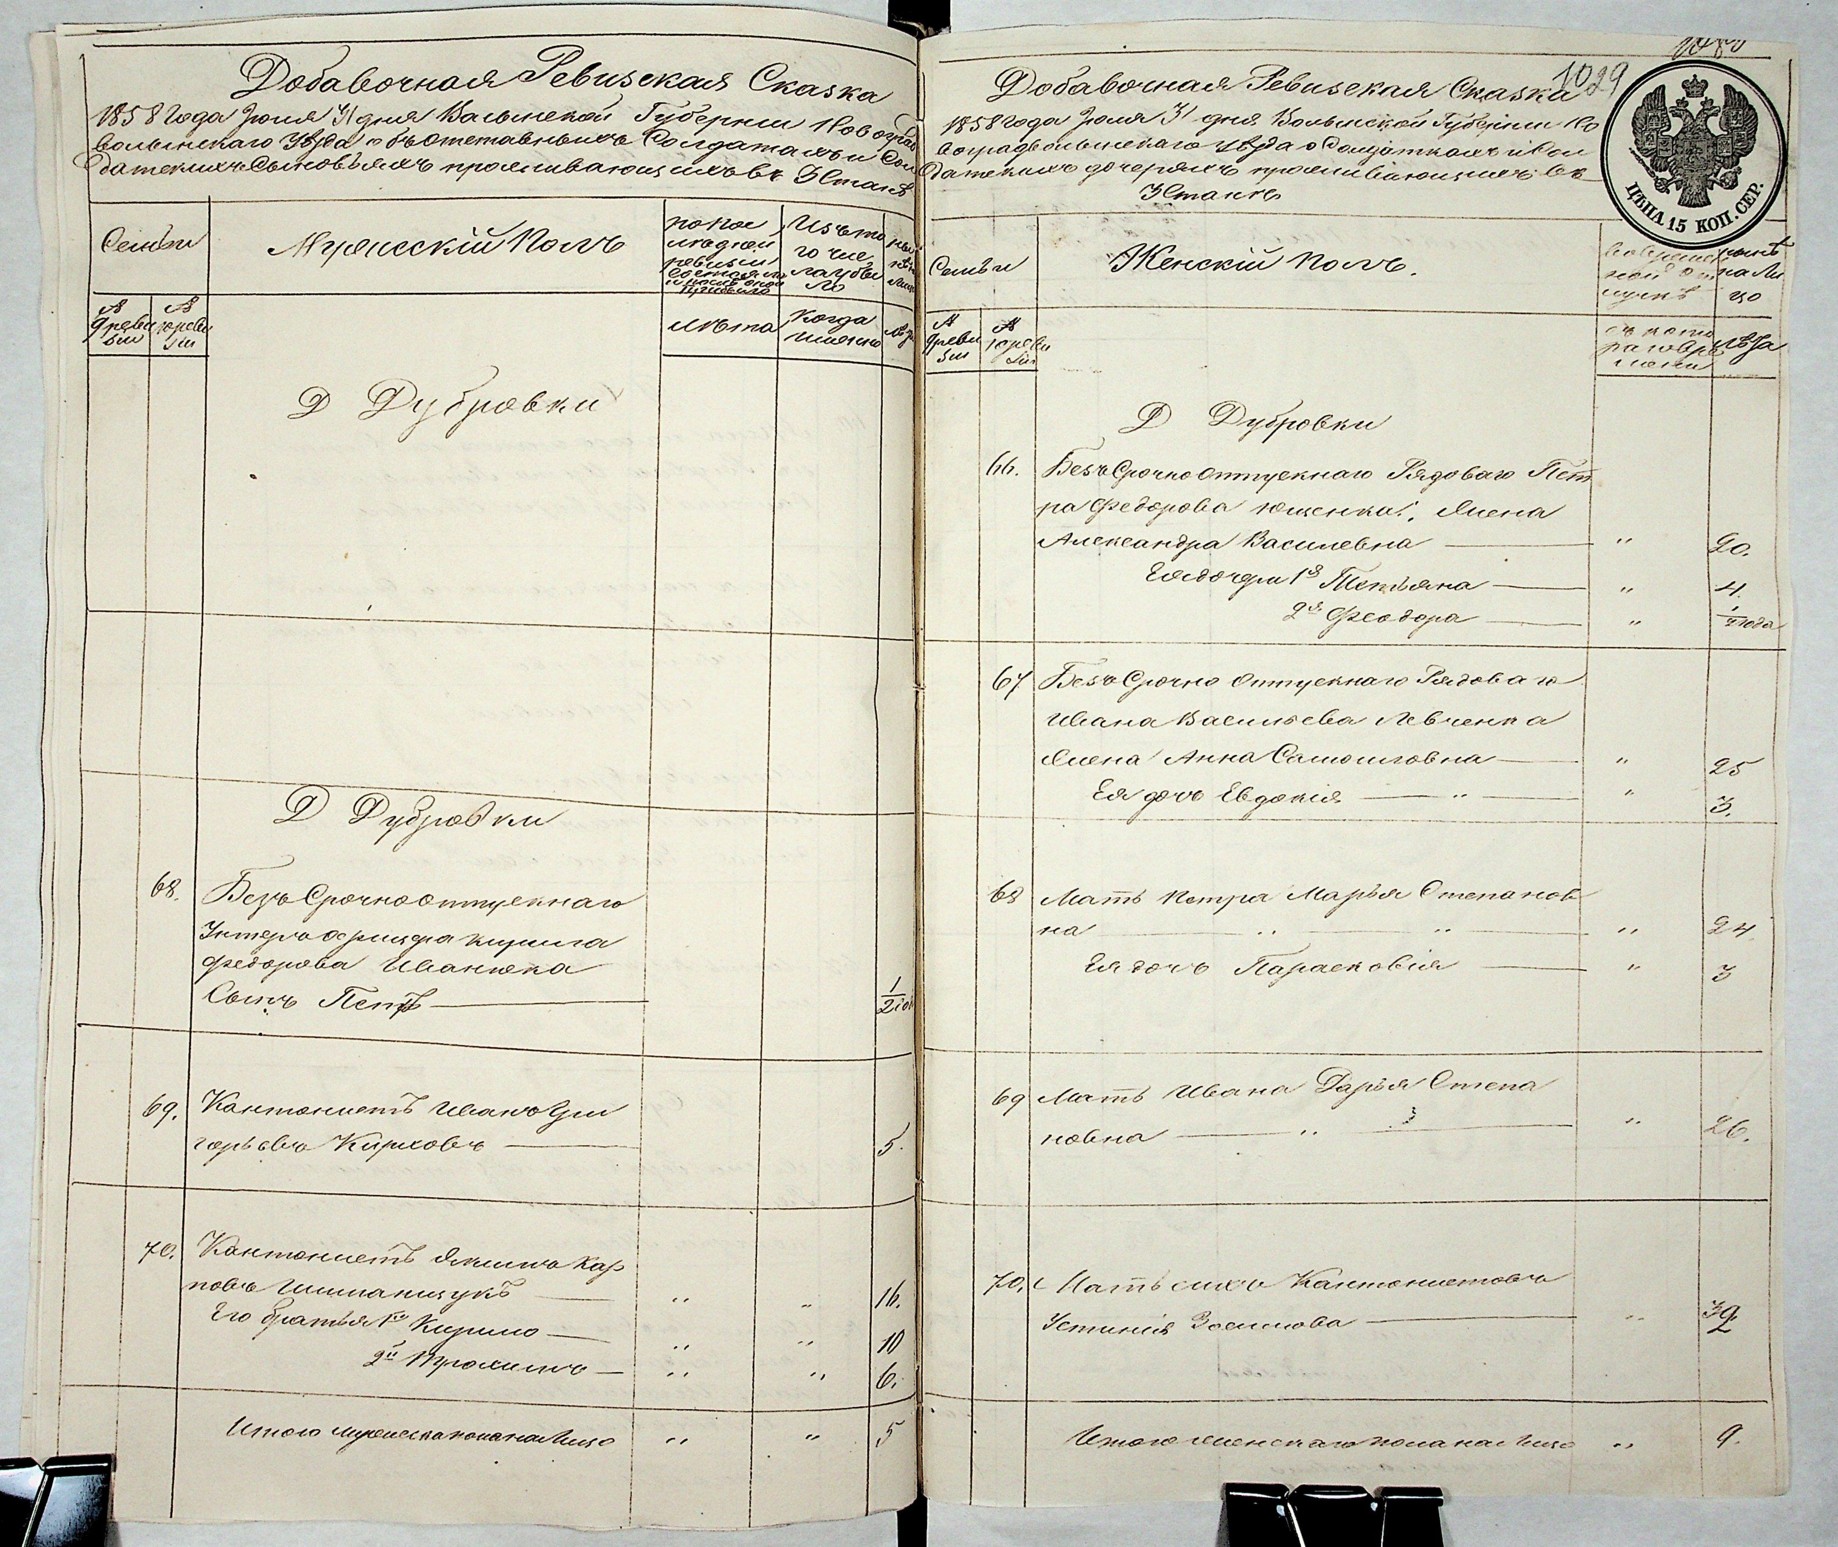 Добавочная Ревизская Сказка
1858 Года Июля 31 дня Волынской Губернии Новоград
волынскаго Уезда объ отставныхъ Солдатахъ и Сол
датскихъ Сыновьяхъ проживающихъ въ
Семьи
Мужескій Полъ
по пос
ледней
ревизіи
состояло
и после оной
прибыло
Изъ то
го чис
ла убы
ло
№
9 реви
зіи
№
10 реви
зіи
лета
когда
именно
Д Дубровки
Д Дубровки
68.
Безъ Срочно отпускнаго
Унтеръ офицера Кирила
федорова Иванюка
Сынъ Петръ
1/2 год
69.
Кантонистъ Иванъ Гри
горьевъ Кирковъ
5.
70.
Кантонистъ Якимъ Кар
повъ
16.
Его братья 1й Кирило
10
2й Трохимъ
6.
Итого мужеска пола на лицо
5
Добавочная Ревизская Сказка
1029
1858 года Июля 31 дня Волынской Губерніи Но
воградволынскаго уезда о Солдаткахъ и Сол
датскихъ дочеряхъ проживающихъ въ
ЦѢНА 15 КОП. СЕР.
Семьи
Женскій Полъ.
во време
нной от
лучке
ныне
на ли
цо
№
9 реви
зіи
№
10 реви
зіи
съ кото
раго вре
мени
лѣта
Д Дубровки
66.
Безъ Срочно отпускнаго Рядоваго Пет
ра Федорова Ющенка, Жена
Александра Василевна
20.
Ея дочери 1я Тетьяна
4.
2я Феодора
1/2 года
67
Безъ Срочно отпускнаго Рядоваго
Ивана Васильева Левченка
Жена Анна Самойловна
25
Ея дочь Евдокія
3.
68
Мать Петра Марья Степанов
на
24
Ея дочь Парасковія
3
69
Мать Ивана Дарья Степа
новна
26.
70.
Мать сихъ Кантонистовъ
Устинія Зосимова
39
Итого женскаго пола на лицо
9.